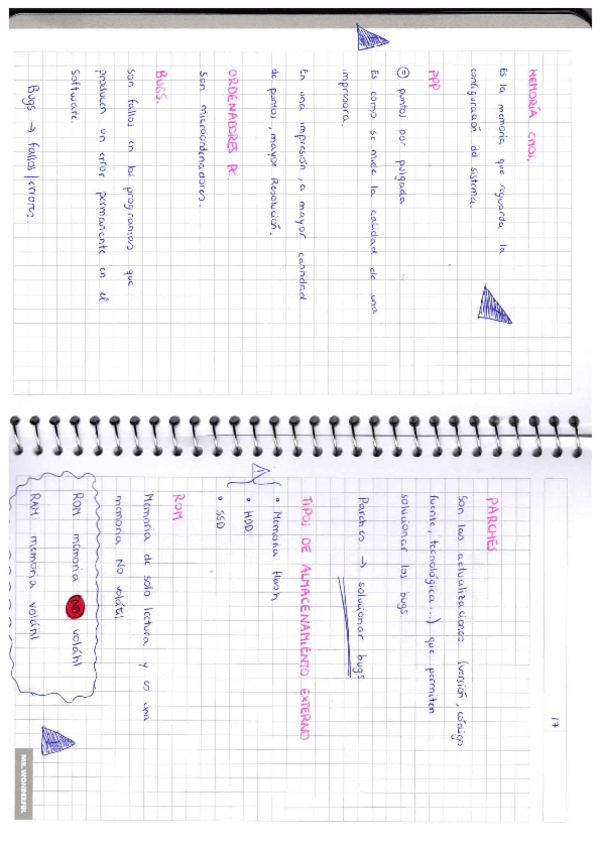 MEMORÍA CMOS.
Es la memoria que aguarda la
configuración del sistema.
PPP
puntos por pulgada
Es como se mide la calidad de una
impresora.
En una impresión, a mayor cantidad
de puntos, mayor Resolución.
ORDENADORES PC.
Son microordenadores.
BUGS.
Son fallos en los programas que
producen un error permanente en el
software.
Bugs → fallos/errores.
17
PARCHES
Son las actualizaciones (versión, código
fuente, tecnológica...) que permiten
solucionar los bugs.
Parches → solucionar bugs
TIPOS DE ALMACENAMIENTO EXTERNO
• Memoria flash
• HDD
• SSD
ROM
Memoria de solo lectura y es una
memoria NO volátil
ROM: memoria NO volátil
RAM: memoria volátil
MR. WONDERFUL